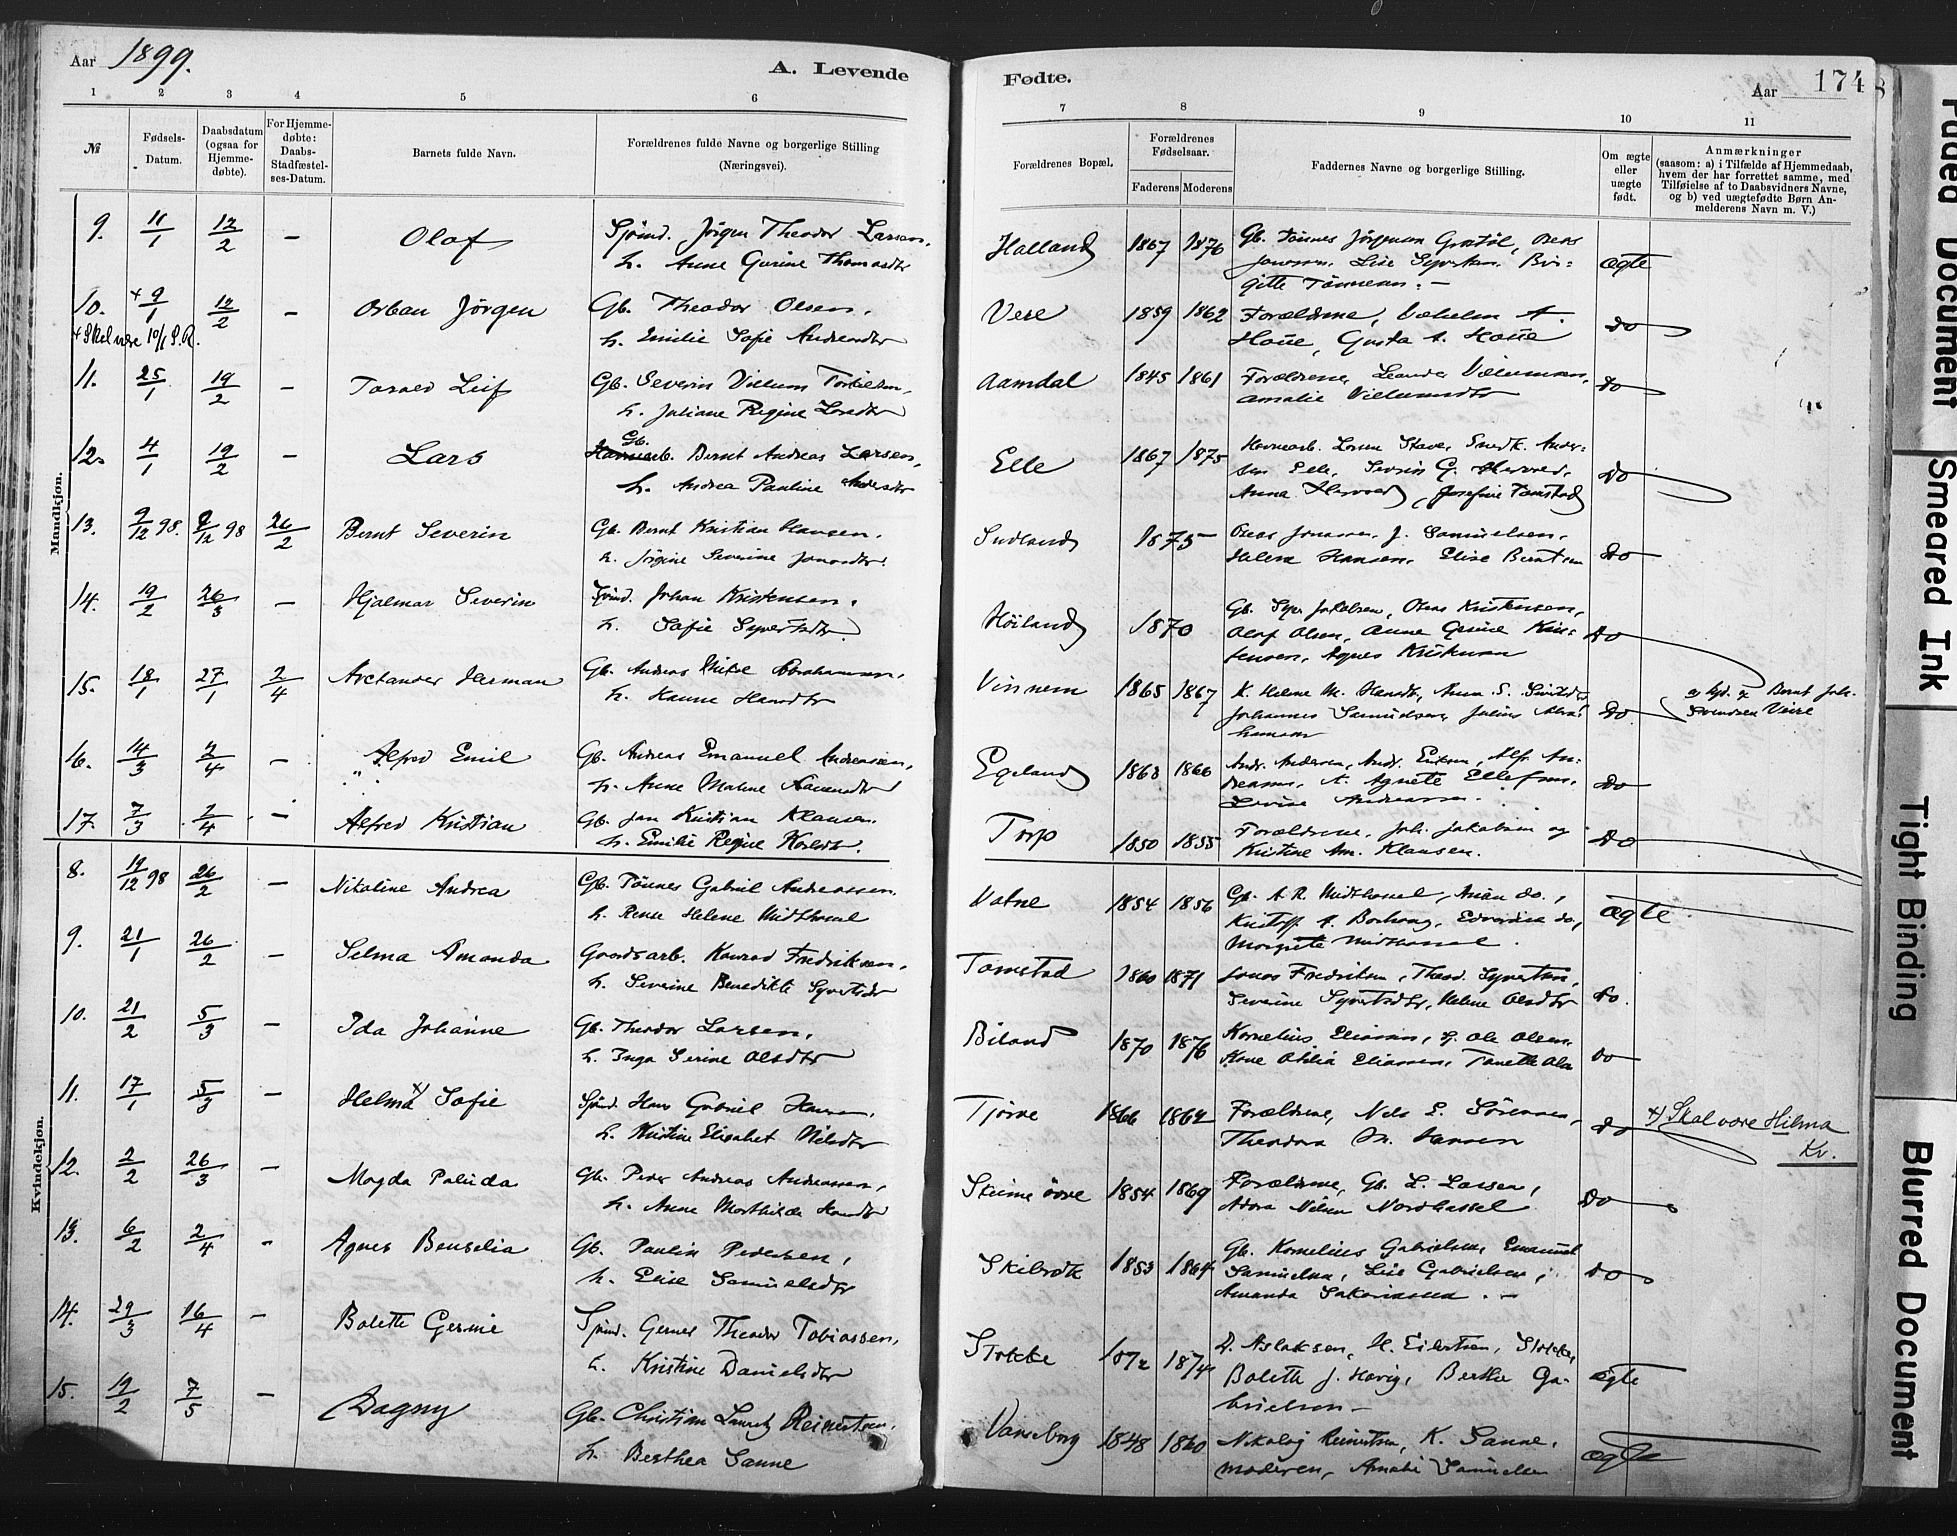 Aar 1899.
A. Levende
Fødte.
Aar
174
8
1 2 3 4 5 6 7 8 9 10 11
№
Fødsels-
Datum.
Daabsdatum
(ogsaa for
Hjemme-
døbte).
For Hjemme-
døbte:
Daabs-
Stadfæstel-
ses-Datum.
Barnets fulde Navn.
Forældrenes fulde Navne og borgerlige Stilling
(Næringsvei).
Forældrenes Bopæl.
Forældrenes
Fødselsaar.
Faderens Moderens
Faddernes Navne og borgerlige Stilling.
Om ægte
eller
uægte
født.
Anmærkninger
(saasom: a) i Tilfælde af Hjemmedaab,
hvem der har forrettet samme, med
Tilføielse af to Daabsvidners Navne,
og b) ved uægtefødte Børn An-
melderens Navn m. V.)
Mandkjøn.
9. 11/1 12/2 — Olaf Sjømd. Jørgen Theodor Larsen,
h. Anne Gurine Thomasdtr
Halland 1867 1876 Gb. Tønnes Jørgensen
Lise Bir-
gitte Tønnesen. — ægte
10. + 9/1 12/2 — Orban Jørgen Gb. Theodor Olsen,
+ Skal være 10/1 S.R. h. Emilie Sofie Andreasdtr
Vere 1859 1862 Forældrene, Vilhelm A.
Houe, Gusta A. Houe do
11. 25/1 19/2 — Torald Leif Gb. Severin Villum
h. Juliane Regine
Aamdal 1845 1861 Forældrene, Leander
Amalie do
12. 4/1 19/2 — Lars Gb.
Havnearb. Bernt Andreas Larsen,
h. Andrea Pauline Andersdtr
Elle 1867 1875 Havnearb. Ander-
sen Elle, Sevrin G.
Anna Josefine Tomstad do
13. 9/12 98. 9/12 98 26/2 Bernt Severin Gb. Bernt Kristian Hansen,
h. Jørgine Severine Jonasdtr.
Sudland 1875 Jonassen, J. Samuelsen,
Helena Hansen, Elise Berntsen do
14. 19/2 26/3 — Hjalmar Severin Sjømd. Johan Kristensen,
h. Sofie Syvertsdtr.
Høiland 1870 Gb. Syv. Jakobsen, Kristensen,
Olaf Olsen, Anne Gurine Kris-
tensen, Agnes Kristensen do
15. 18/1 27/1 2/4 Herman Gb. Andreas Mikal Abrahamsen,
h. Hanne Hansdtr
Vinnem 1865 1867 K. Helene M. Hansdtr, Anna S.
Johannes Samuelsen, Julius Abra-
hamsen do. Bernt Joh.
Svendsen Veire
16. 14/3 2/4 — Alfred Emil Gb. Andreas Emanuel Andreassen,
h. Anne Maline
Egeland 1868 1866 Andr. Andersen, Andr. Eriksen, Alfr. An-
dreassen, A. Agnete Ellefsen,
Lovise Andreassen. do
17. 7/3 2/4 — Alfred Kristian Gb. Jan Kristian Klausen.
h. Emilie Regine
Torp 1850 1855 Forældrene, Joh. Jakobsen og
Kristine Am. Klausen. do
Kvindekjøn.
8. 19/12 98 26/2 — Nikoline Andrea Gb. Tønnes Gabriel Andreassen
h. Rense Helene Midthassel
Vatne 1854 1856 Gb. A. R. Midthassel, do,
Kristoff. A. Borhaug, do,
Margrete Midthassel. ægte
9. 21/1 26/2 — Selma Amanda Gaardsarb. Konrad Fredriksen,
h. Severine Benedikte Syvertsdtr
Tomstad 1860 1871 Jonas Fredriksen, Theod. Syvertsen,
Severine Syvertsdtr, Helene Olsdtr do.
10. 21/2 5/3 — Ida Johanne Gb. Theodor Larsen,
h. Inga Serine Olsdtr
Biland 1870 1876 Kornelius Eliassen, g. Ole Olsen,
Kone Otilia Eliassen, Tanette do
11. 17/1 5/3 — Helma x) Sofie Sjømd. Hans Gabriel Hansen,
h. Kristine Elisabet Nilsdtr
Tjørve 1866 1862 Forældrene, Nils E. Sørensen,
Theodora M. Hansen do x) Skal være Hilma
Kv.
12. 2/2 26/3 — Magda Palida Gb. Peder Andreas Andreassen,
h. Anne Marthilde Hansdtr
Skeime øvre 1854 1869 Forældrene, Gb. L. Lassen,
Adora Nilsen Nordhassel do
13. 6/2 2/4 - Agnes Benselia Gb. Paulin Pedersen,
h. Elise Samuelsdtr
Skibvdt 1853 1864 Gb. Kornelius Gabrielsen, Emanuel
Samuelsen, Lise Gabrielsen,
Amanda Sakariassen. — do
14. 29/3 16/4 — Bolette Germie Sjømd. Gerner Theodor Tobiassen,
h. Kristine Danielsdtr
Stokke 1872 1874 D. Aslaksen, H. Eilertsen, Stokke,
Bolette J. Havig, Berthe Ga-
brielsen — ægte
15. 19/2 7/5 — Dagny Gb. Christian Lauritz Reinertsen,
h. Berthea Sanne
Vanseborg 1848 1860 Nikolaj Reinertsen, K. Sanne,
moderen, Amalie Samuelsen ægte
Faded Document
Smeared Ink
Tight Binding
Blurred Document